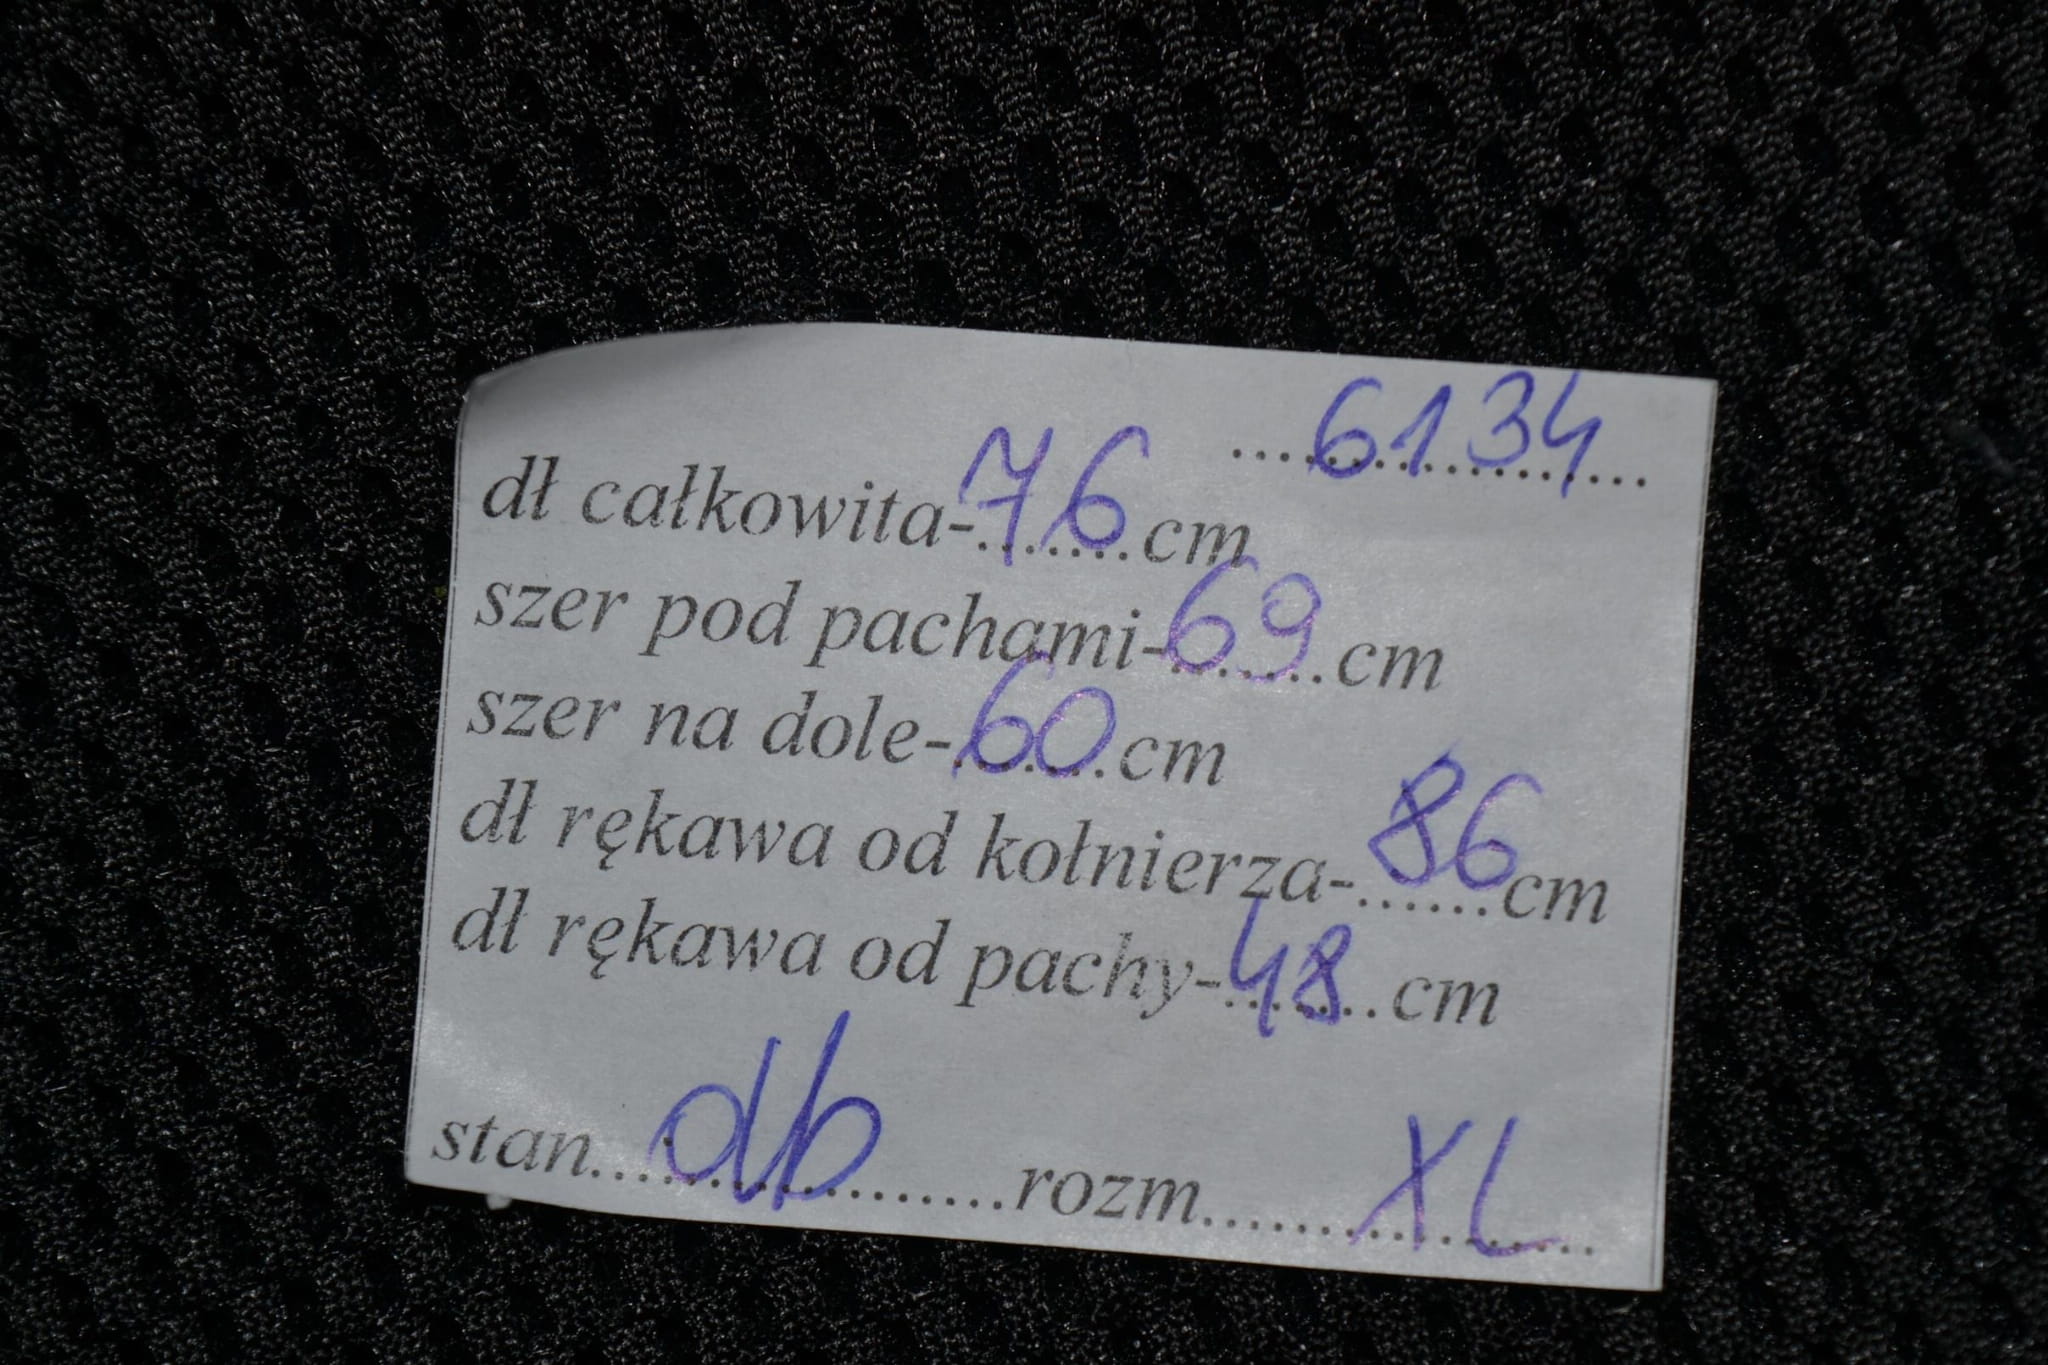 6134
dł całkowita-76cm
szer pod pachami-69cm
szer na dole-60cm
dł rękawa od kołnierza-86cm
dł rękawa od pachy-48cm
stan....db....rozm....XL....